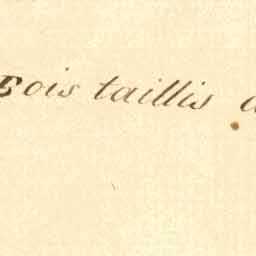 Bois taillis